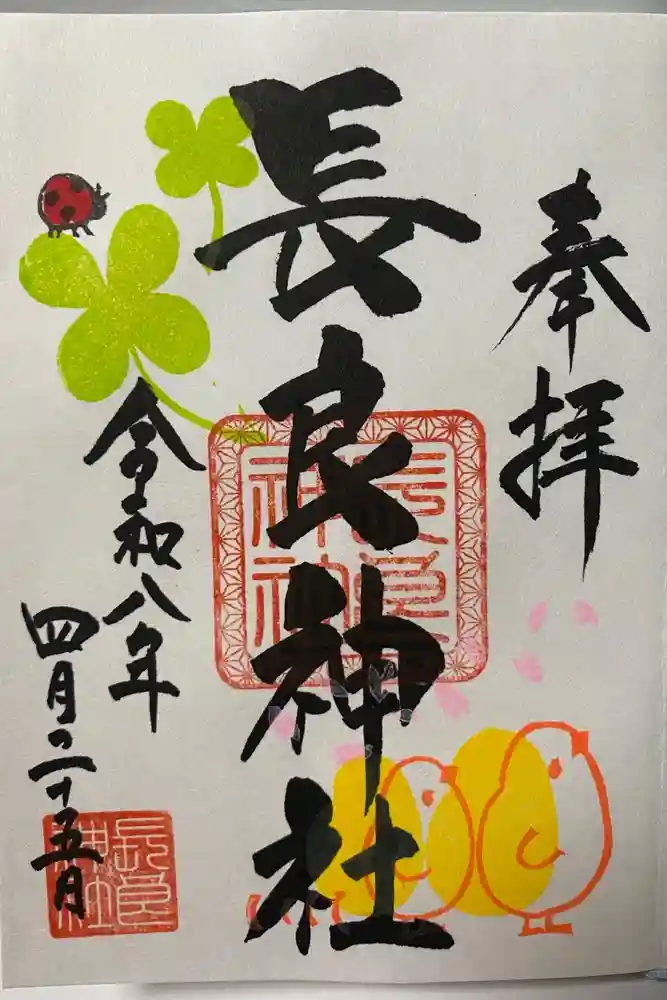 奉拝
長良神社
長良
神社
令和八年
四月二十五日
長良
神社